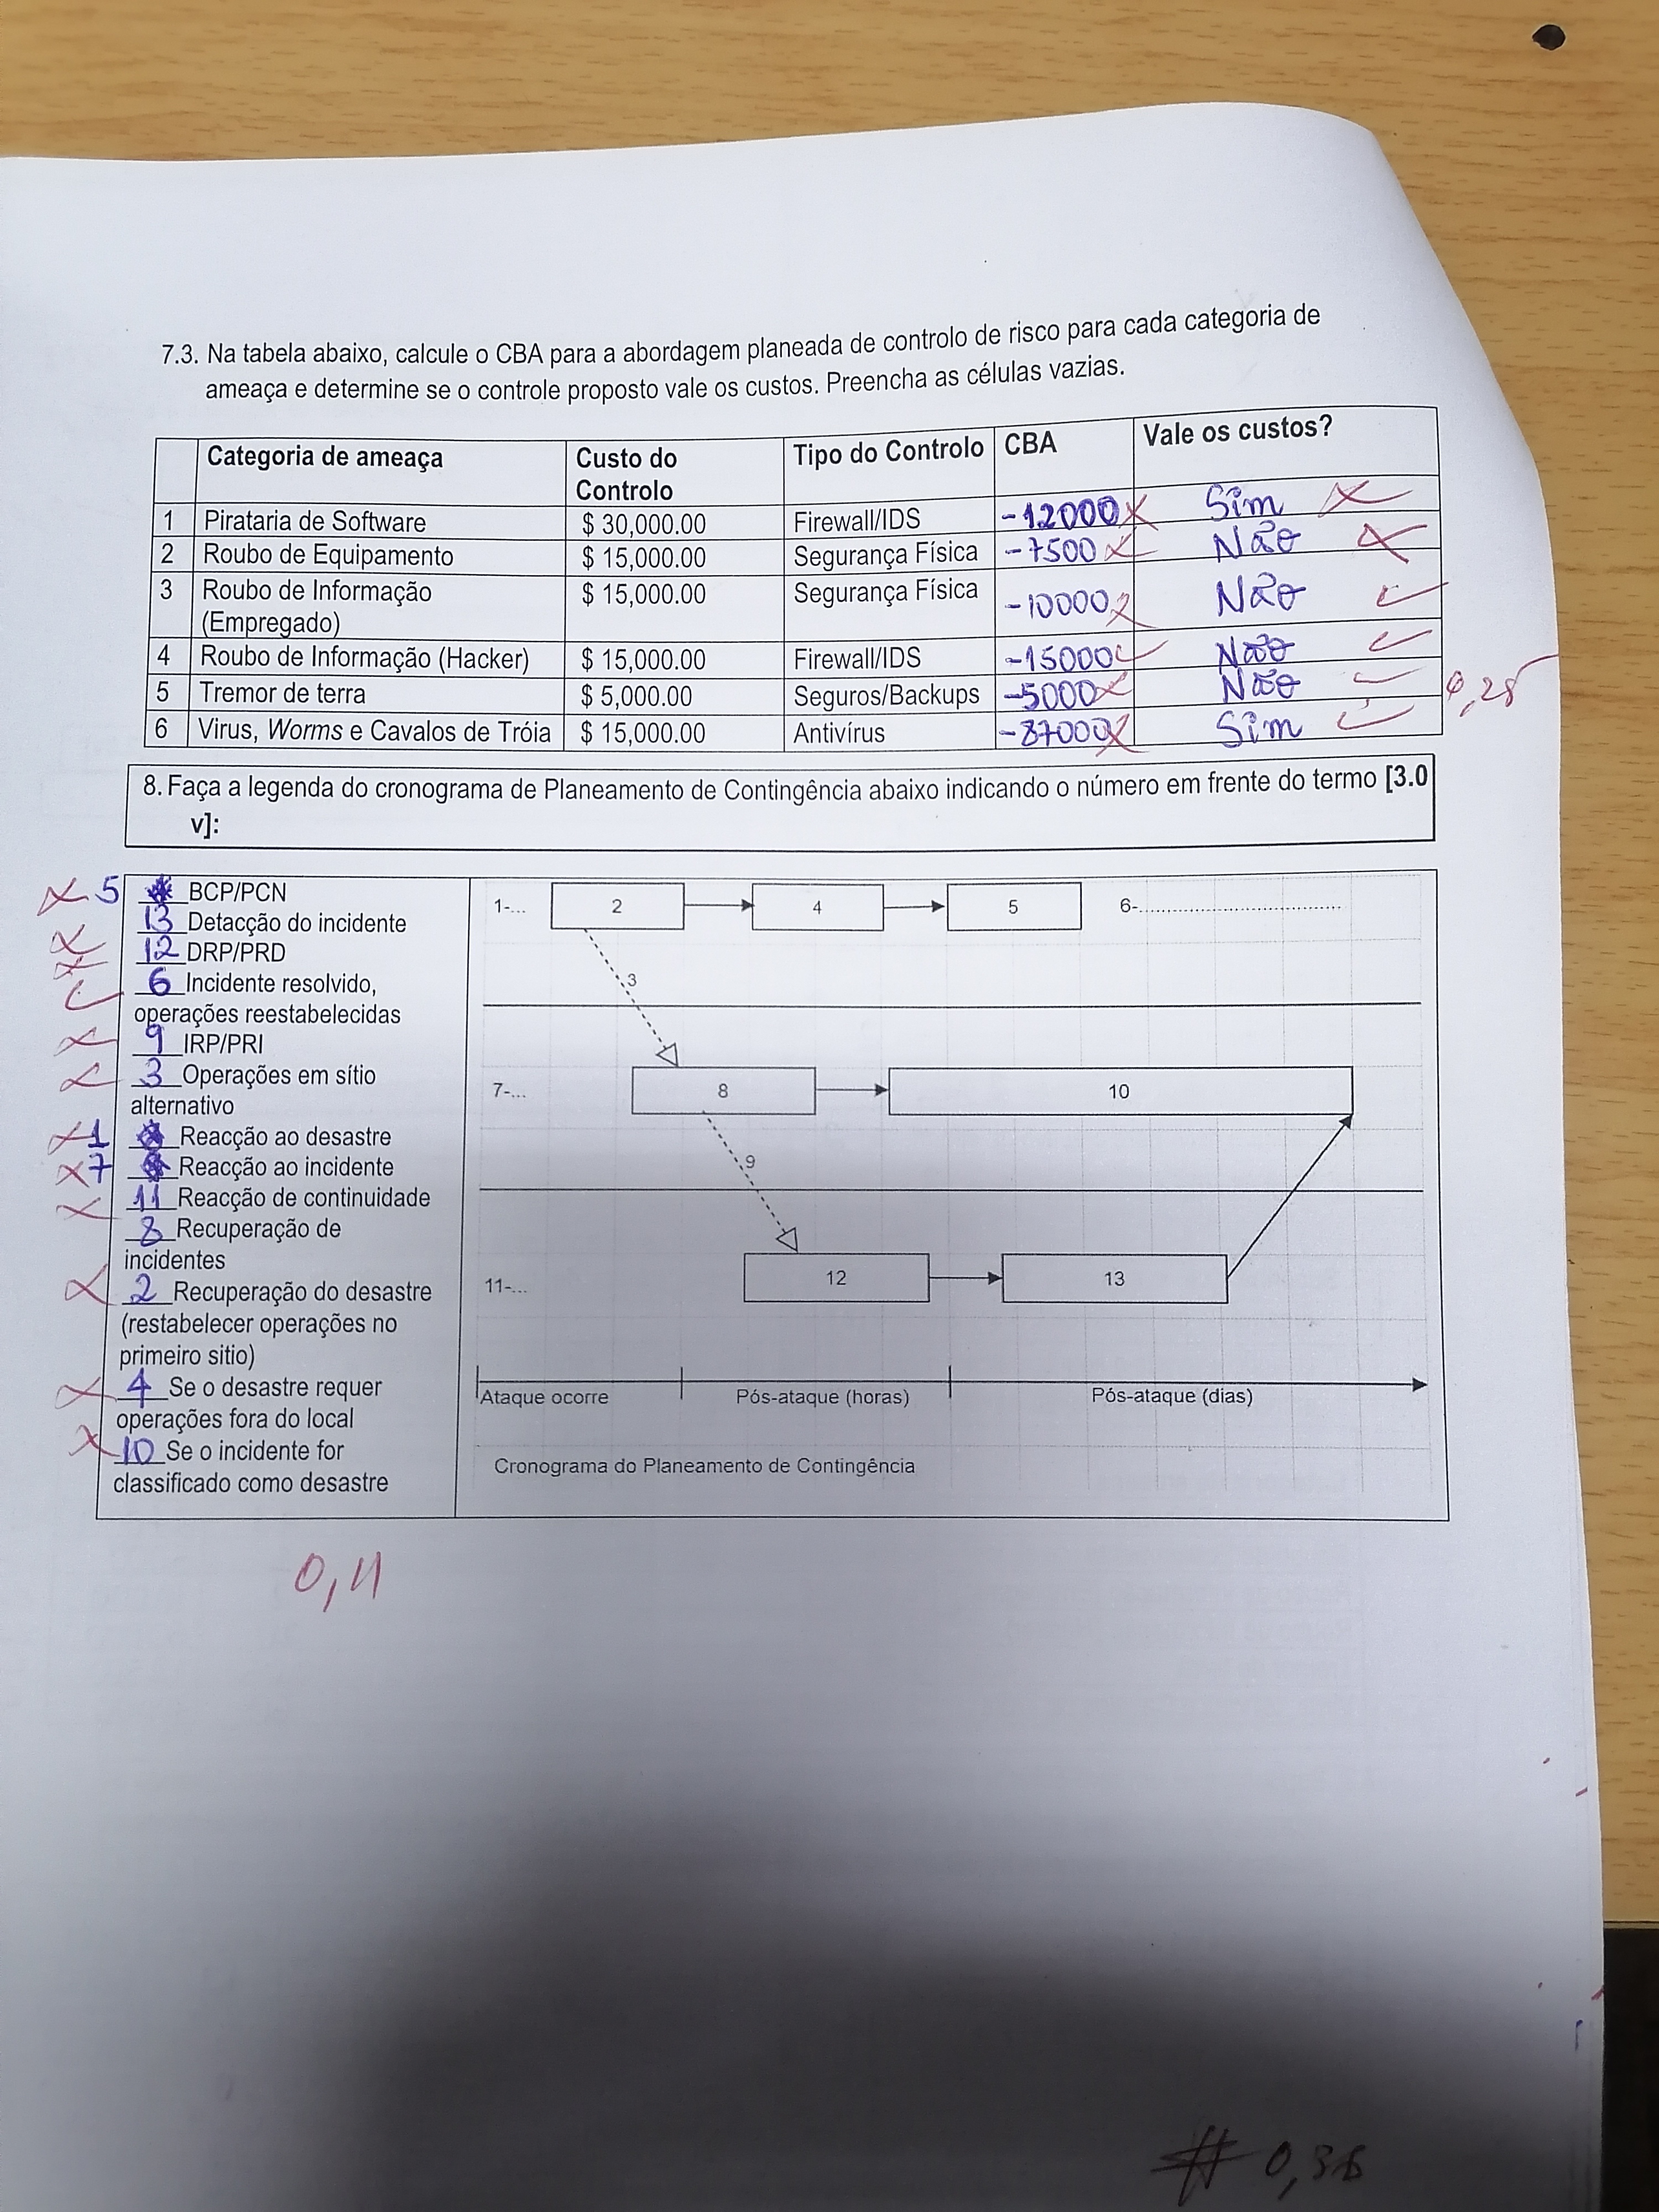 7.3. Na tabela abaixo, calcule o CBA para a abordagem planeada de controlo de risco para cada categoria de
ameaça e determine se o controle proposto vale os custos. Preencha as células vazias.
Categoria de ameaça Custo do Controlo Tipo do Controlo CBA Vale os custos?
1 Pirataria de Software $ 30,000.00 Firewall/IDS -12000 Sim
2 Roubo de Equipamento $ 15,000.00 Segurança Física -7500 Não
3 Roubo de Informação (Empregado) $ 15,000.00 Segurança Física -10000 Não
4 Roubo de Informação (Hacker) $ 15,000.00 Firewall/IDS -15000 Não
5 Tremor de terra $ 5,000.00 Seguros/Backups -5000 Não
6 Virus, Worms e Cavalos de Tróia $ 15,000.00 Antivírus -87000 Sim
0,25
8. Faça a legenda do cronograma de Planeamento de Contingência abaixo indicando o número em frente do termo [3.0
v]:
5 BCP/PCN
13 Detacção do incidente
12 DRP/PRD
6 Incidente resolvido,
operações reestabelecidas
9 IRP/PRI
3 Operações em sítio
alternativo
1 Reacção ao desastre
7 Reacção ao incidente
11 Reacção de continuidade
8 Recuperação de
incidentes
2 Recuperação do desastre
(restabelecer operações no
primeiro sitio)
4 Se o desastre requer
operações fora do local
10 Se o incidente for
classificado como desastre
1-... 2 4 5 6-..................................
3
7-... 8 10
9
11-... 12 13
Ataque ocorre Pós-ataque (horas) Pós-ataque (dias)
Cronograma do Planeamento de Contingência
0,11
# 0,36